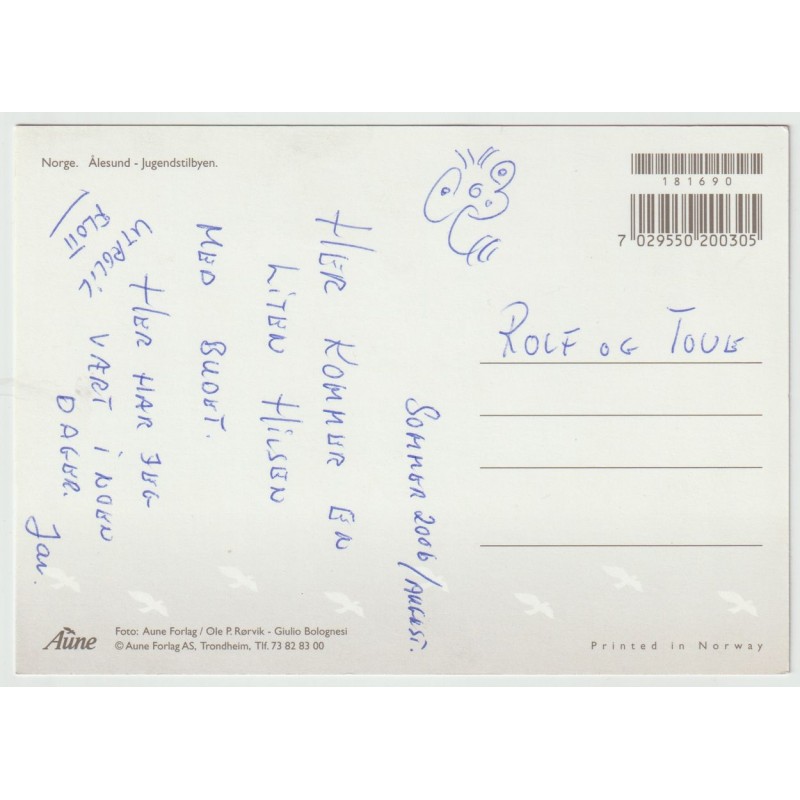 Norge. Ålesund - Jugendstilbyen.
181690
7 029550 200305
HER KOMMER EN
LITEN HILSEN
MED BUDET.
HER HAR JEG
VÆRT I NOEN
DAGER.
UTROLIG
FLOTT
Jan.
SOMMER 2006/AUGUST.
ROLF OG TOVE
Aune
Foto: Aune Forlag / Ole P. Rørvik - Giulio Bolognesi
© Aune Forlag AS, Trondheim, Tlf. 73 82 83 00
Printed in Norway